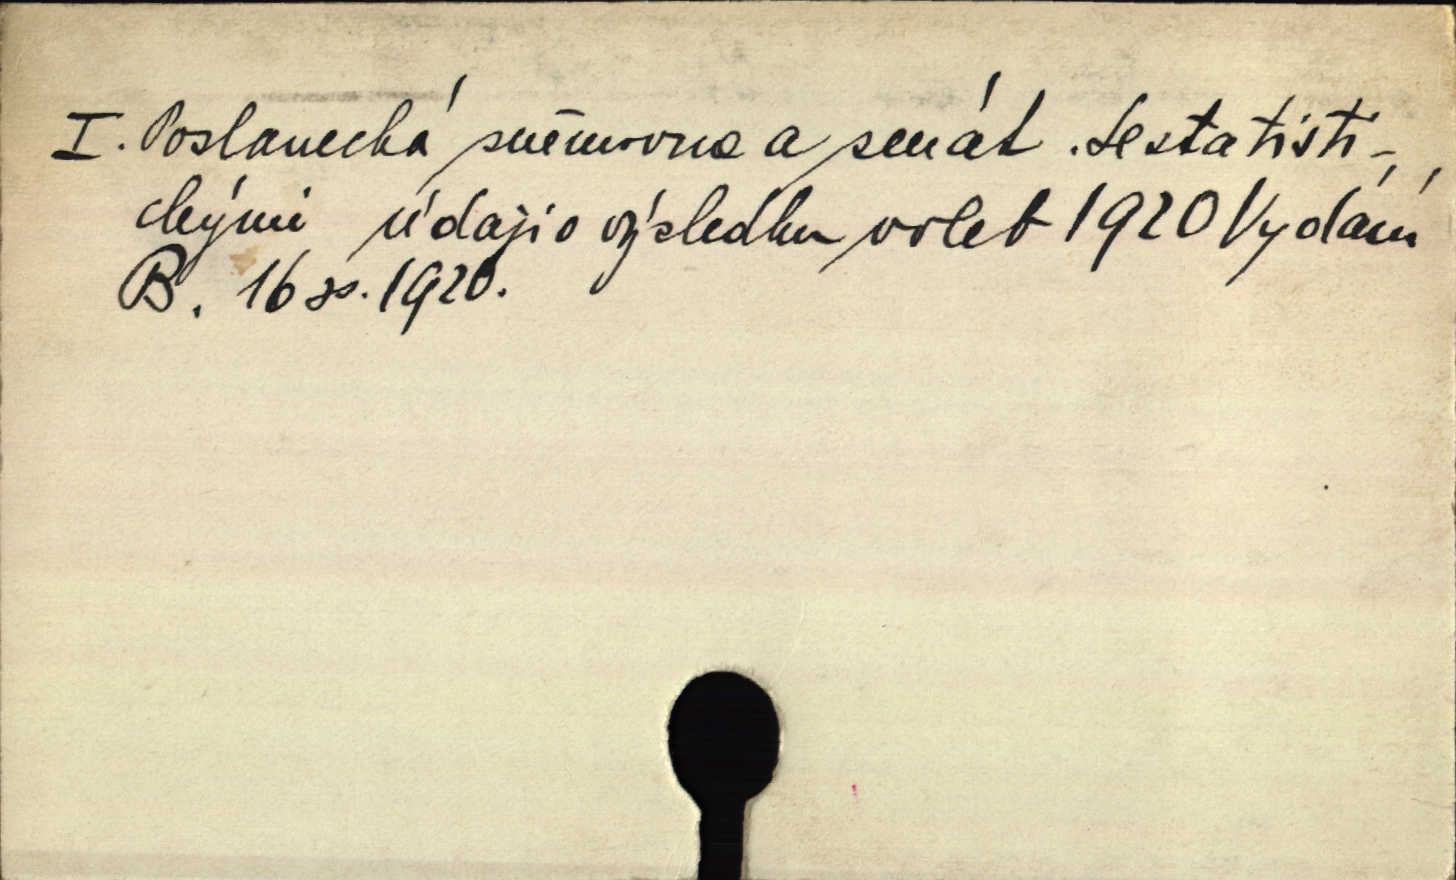 I. Poslanecká sněmovna a senát. Se statisti-
ckými údaji o výsledku voleb 1920 Vydání
B. 16 ss. 1920.